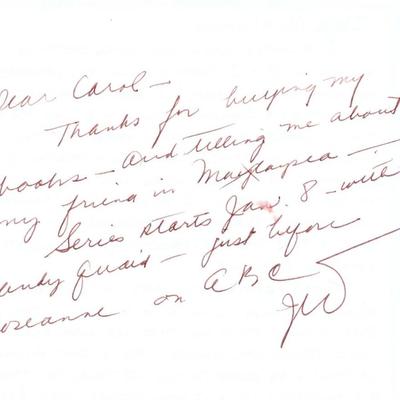 Dear Carol —
Thanks for buying my
books — and telling me about
my friend in Maylaysia —
Series starts Jan. 8 — with
Randy Quaid — just before
Roseanne on ABC
JW